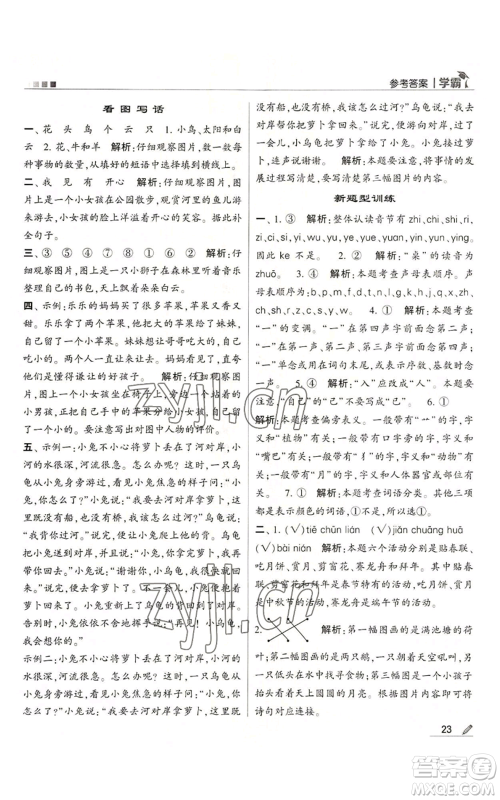 参考答案 学霸
看图写话
一、花 头 鸟 个 云 只 1.小鸟、太阳和白
云 2.花、牛和羊 解析:仔细观察图片,数一数每
种事物的数量,从填好的短语中选填到横线上。
二、美 见 有 开心 解析:仔细观察图片,图片
上描绘的是一个小女孩在公园散步,发现河里的鱼儿游
来游去,小女孩显得非常开心。根据看到的内容,补
全句子。
三、③ ⑤ ④ ② ⑥ ① 解析:仔
细观察图片,图片上描绘的是小狮子在森林里听着音乐
整理自己的书包,天上飘着朵朵白云。
四、示例:乐乐的妈妈买了很多苹果,苹果又大又
甜。乐乐拿了两个苹果,把大的苹果给了妹妹,
自己吃小的苹果。妹妹笑了,乐乐也笑了。他们
真是懂得谦让的好孩子。 解析:仔细观察图
片,图上的小男孩手中把大苹果分给了小女孩,自己吃
的是小苹果,注意写出对图中人物的评价。
五、示例一:小兔不小心把萝卜丢在了河对岸,河
水很深,河流很急。怎么办呢?这时,一只乌龟
从小兔身旁游过,看到小兔焦急的样子问:“小兔,
你怎么了?”小兔说:“我要去河对岸拿萝卜。”乌龟说:
“我背你过河吧!”小兔高兴地说:“好呀!”乌龟
把小兔送到对岸,小兔拿到了萝卜。小兔又想:
我该怎么回去呢?小兔来到小乌龟身边说:“小乌
龟,可以把我送回去吗?”小乌龟听了说:“没问
题!”就这样,小兔和萝卜一起回到了对岸。小兔
说:“谢谢你,小乌龟!”小乌龟说:“不用谢,这是
我应该做的!”
示例二:小兔不小心把萝卜丢在了河对岸,河里
的水很深,河流很急。怎么办呢?这时,一只乌龟
从小兔身边游过,看到小兔焦急的样子问:“小兔,
你怎么了?”小兔说:“我要去河对岸拿萝卜,可是
没有船,也没有桥,怎么过河?”乌龟说:“我去
对岸帮你把萝卜拿回来。”小兔高兴地说:“好
呀!”不一会儿,乌龟把萝卜拿回来了。小兔很感
激,连声说谢谢。 解析:本题考查同学们看
图写话的能力。要注意写清楚第三幅图片的内容。
新题型训练
一、1.③ 解析:整体认读音节有zhi,chi,shi,ri,
zi,ci,si,yi,wu,yu,ye,yue,yuan,yin,yun,ying,
因此 ke 不是。 2.③ 解析:“桌”的读音为
zhuō。 3.① 解析:本题考查声母表顺序。声
母表顺序为:b,p,m,f,d,t,n,l,g,k,h,j,q,x,zh,
ch,sh,r,z,c,s,y,w。 4.① 解析:本题考查
“一”的变调。“一”在第四声字前面念第二声;
“一”在第一声、第二声、第三声字前面念第四声;
“一”单念或用在词句末尾,或表示序数,声调不
变。 5.② 解析:“人”应改为“入”。本题要
注意,“八”“人”“入”容易写错。 6.①
解析:本题考查偏旁表义。一般带有“艹”的字,义
和“植物”有关;一般带有“口”的字,字义和
“嘴巴”有关;一般带有“虫”的字,义和动物有
关;一般带有“月”的字,字义和人体器官或部位有
关。 7.① 解析:本题考查词语分类,其他三
项都是表示颜色的词语,①表示天气。
二、1.(√)tiē chūn lián (√)jiān chuāng huā
(√)bài nián 解析:本题六个活动分别是贴春联、
吃月饼、赏窗花、赛龙舟和拜年。吃月饼、赏月
是中秋节的活动,赛龙舟是端午节的活动。
2. 解析:第一幅图画的是满池塘的荷
叶,第二幅图画的是两只鹅,一只抬头看天空吼叫,另一
只在水里游,第三幅图片的是江上的小船,第四幅图片
画的是抬头看着天上圆圆的月亮。根据图片内容与
诗句对应连接。
23
zyjl.cn
zyjl.cn